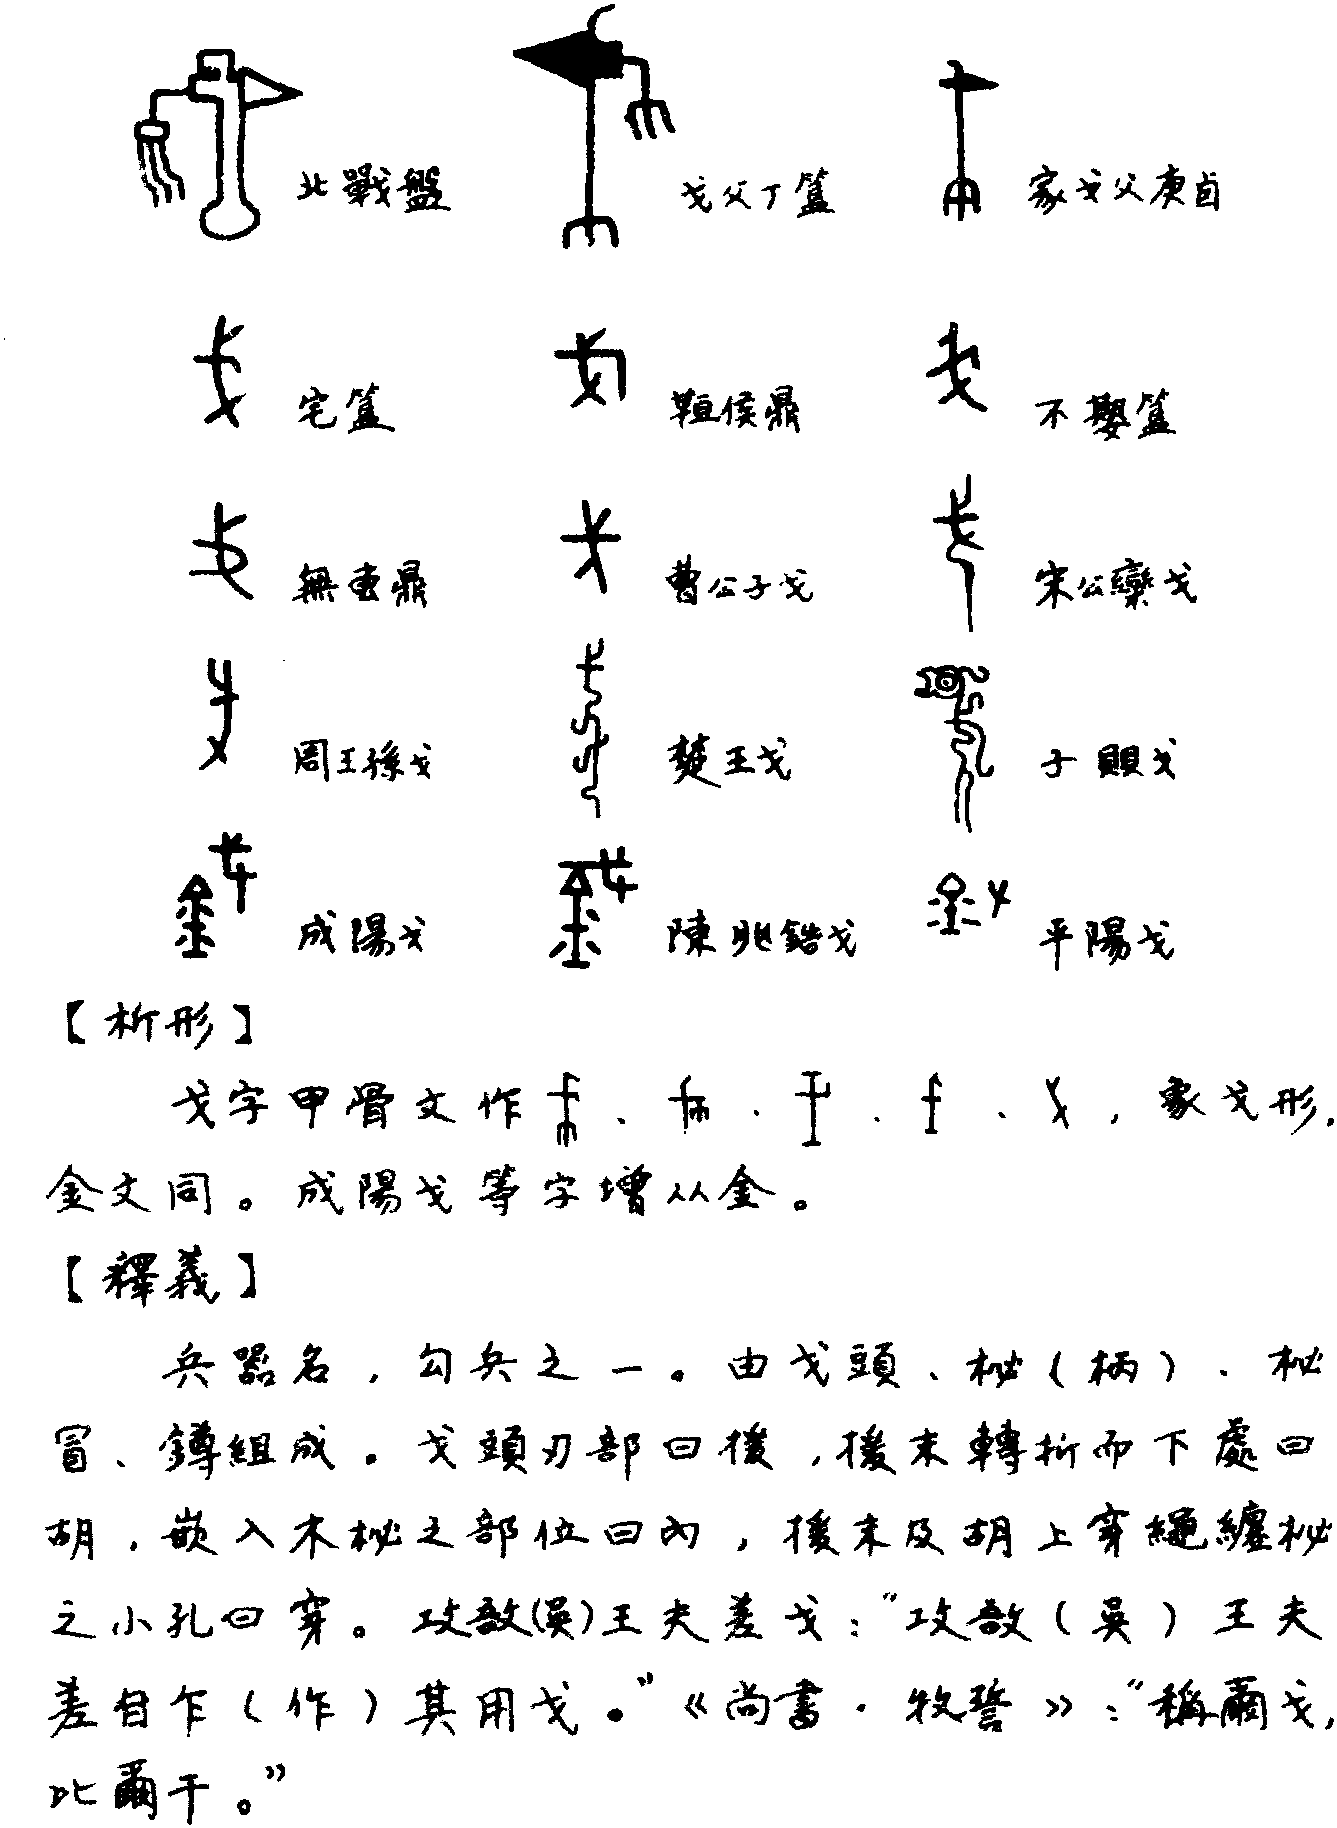 北單戈盤 戈父丁簋 家戈父庚卣
宅簋 𩏩侯鼎 不𡢁簋
無叀鼎 曹公子戈 宋公欒戈
周王孫戈 楚王戈 子䣓戈
成陽戈 陳𠨘鋯戈 平陽戈
【析形】
戈字甲骨文作、、、、，象戈形，
金文同。成陽戈等字增从金。
【釋義】
兵器名，勾兵之一。由戈頭、柲（柄）、柲
冒、鐏組成。戈頭刃部曰援，援末轉折而下處曰
胡，嵌入木柲之部位曰內，援末及胡上穿繩纏柲
之小孔曰穿。攻敔(吳)王夫差戈：“攻敔（吳）王夫
差自乍（作）其用戈。”《尚書·牧誓》：“稱爾戈，
比爾干。”